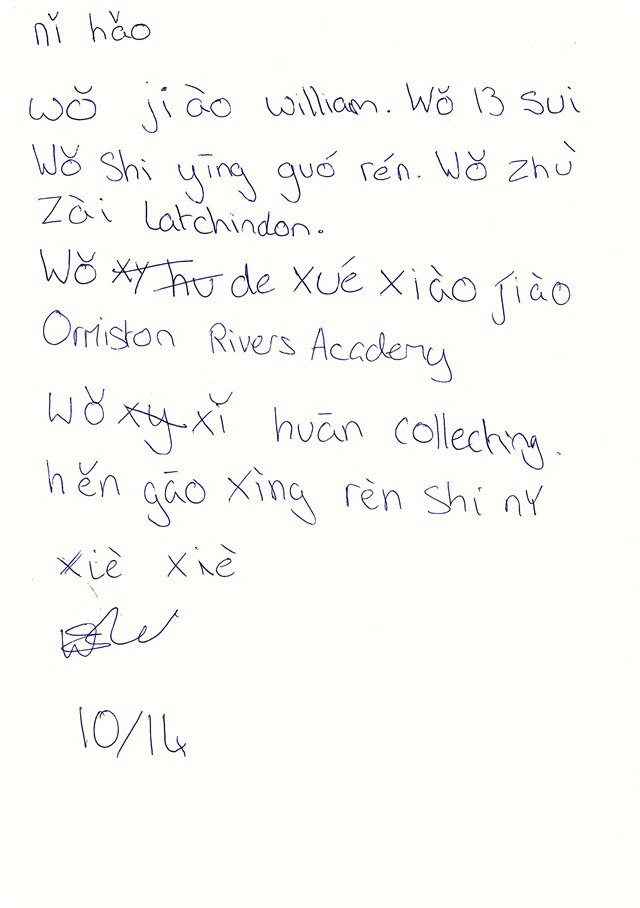 nǐ hǎo
wǒ jiào william. Wǒ 13 sui
Wǒ Shi yīng guó rén. Wǒ zhù
Zài Latchindon.
Wǒ de xué xiào jiào
Ormiston Rivers Academy
Wǒ xǐ huān collecting.
hěn gāo xìng rèn shi ny
xiè xiè
10/14